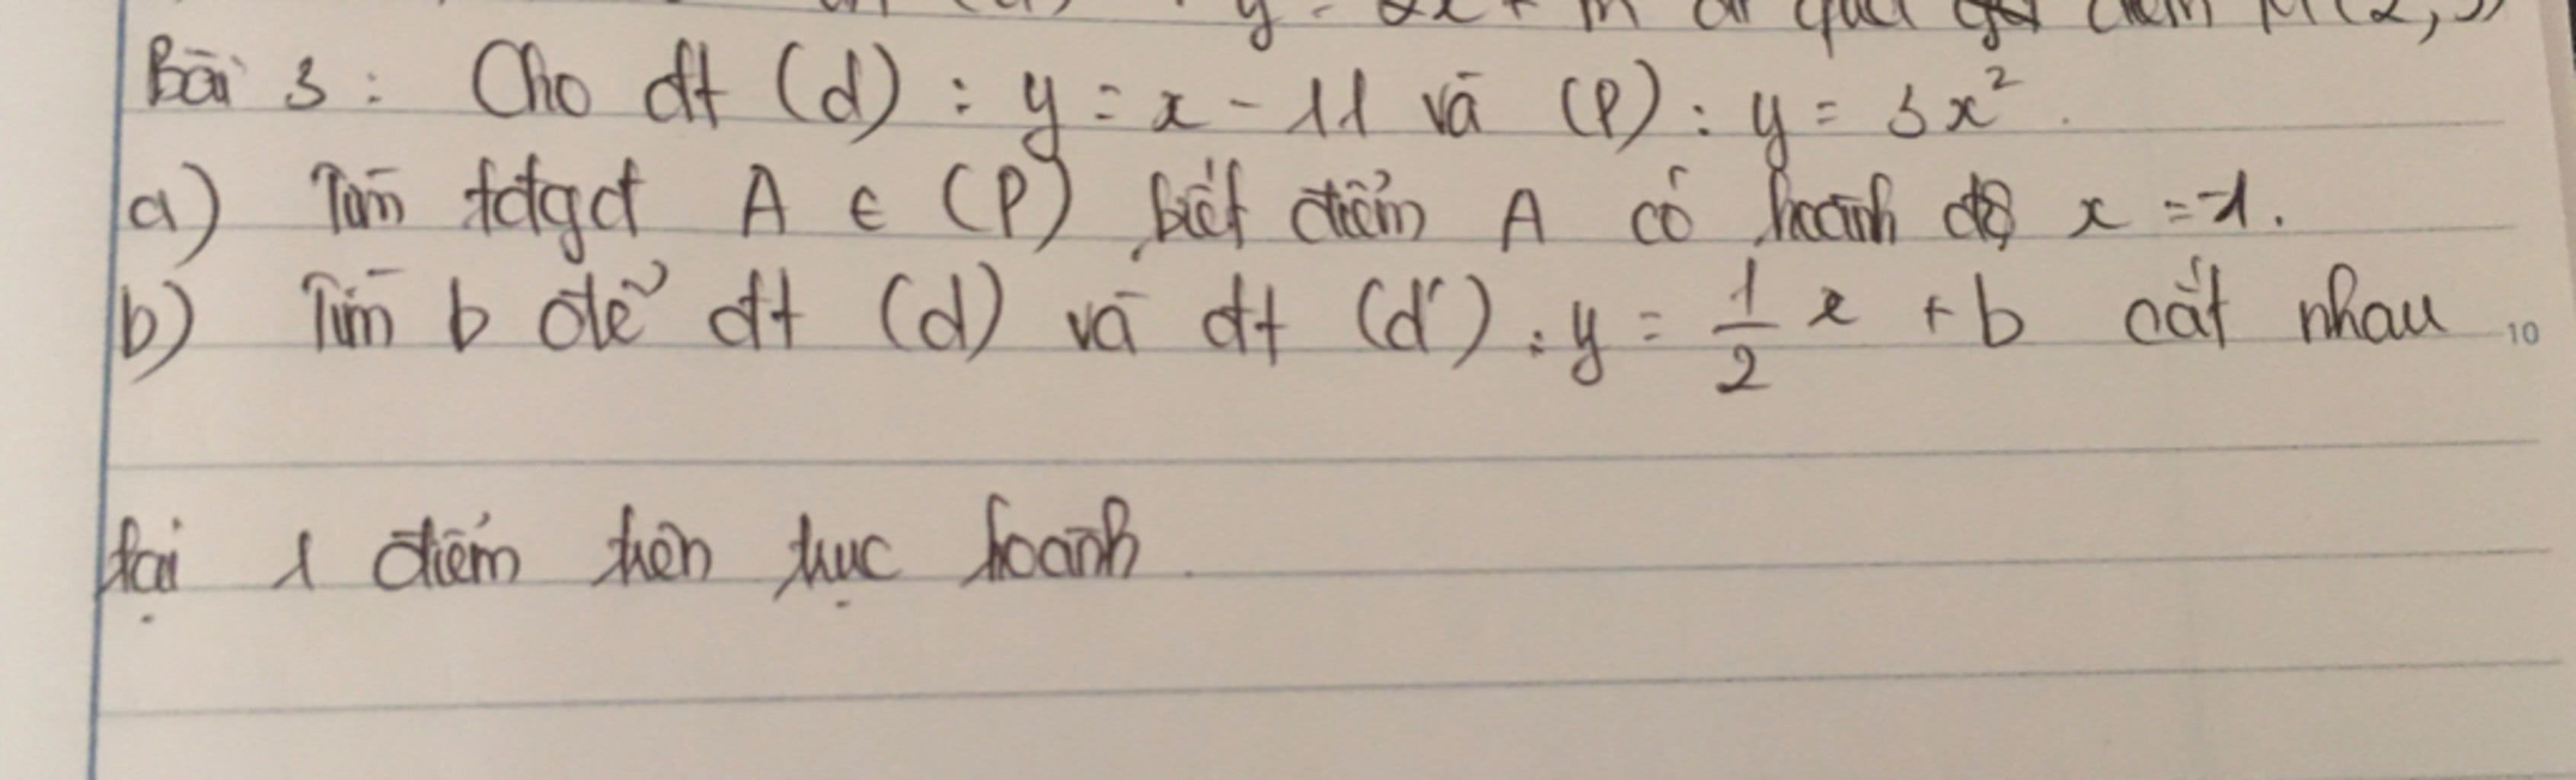 y = 2x + m đi qua điểm M(2,3)
Bài 3 : Cho đt (d) : y = x - 11 và (P) : y = 3x².
a) Tìm tđgđ A ∈ (P) biết điểm A có hoành độ x = -1.
b) Tìm b để đt (d) và đt (d') : y = 1/2 x + b cắt nhau
10
tại 1 điểm trên trục hoành.